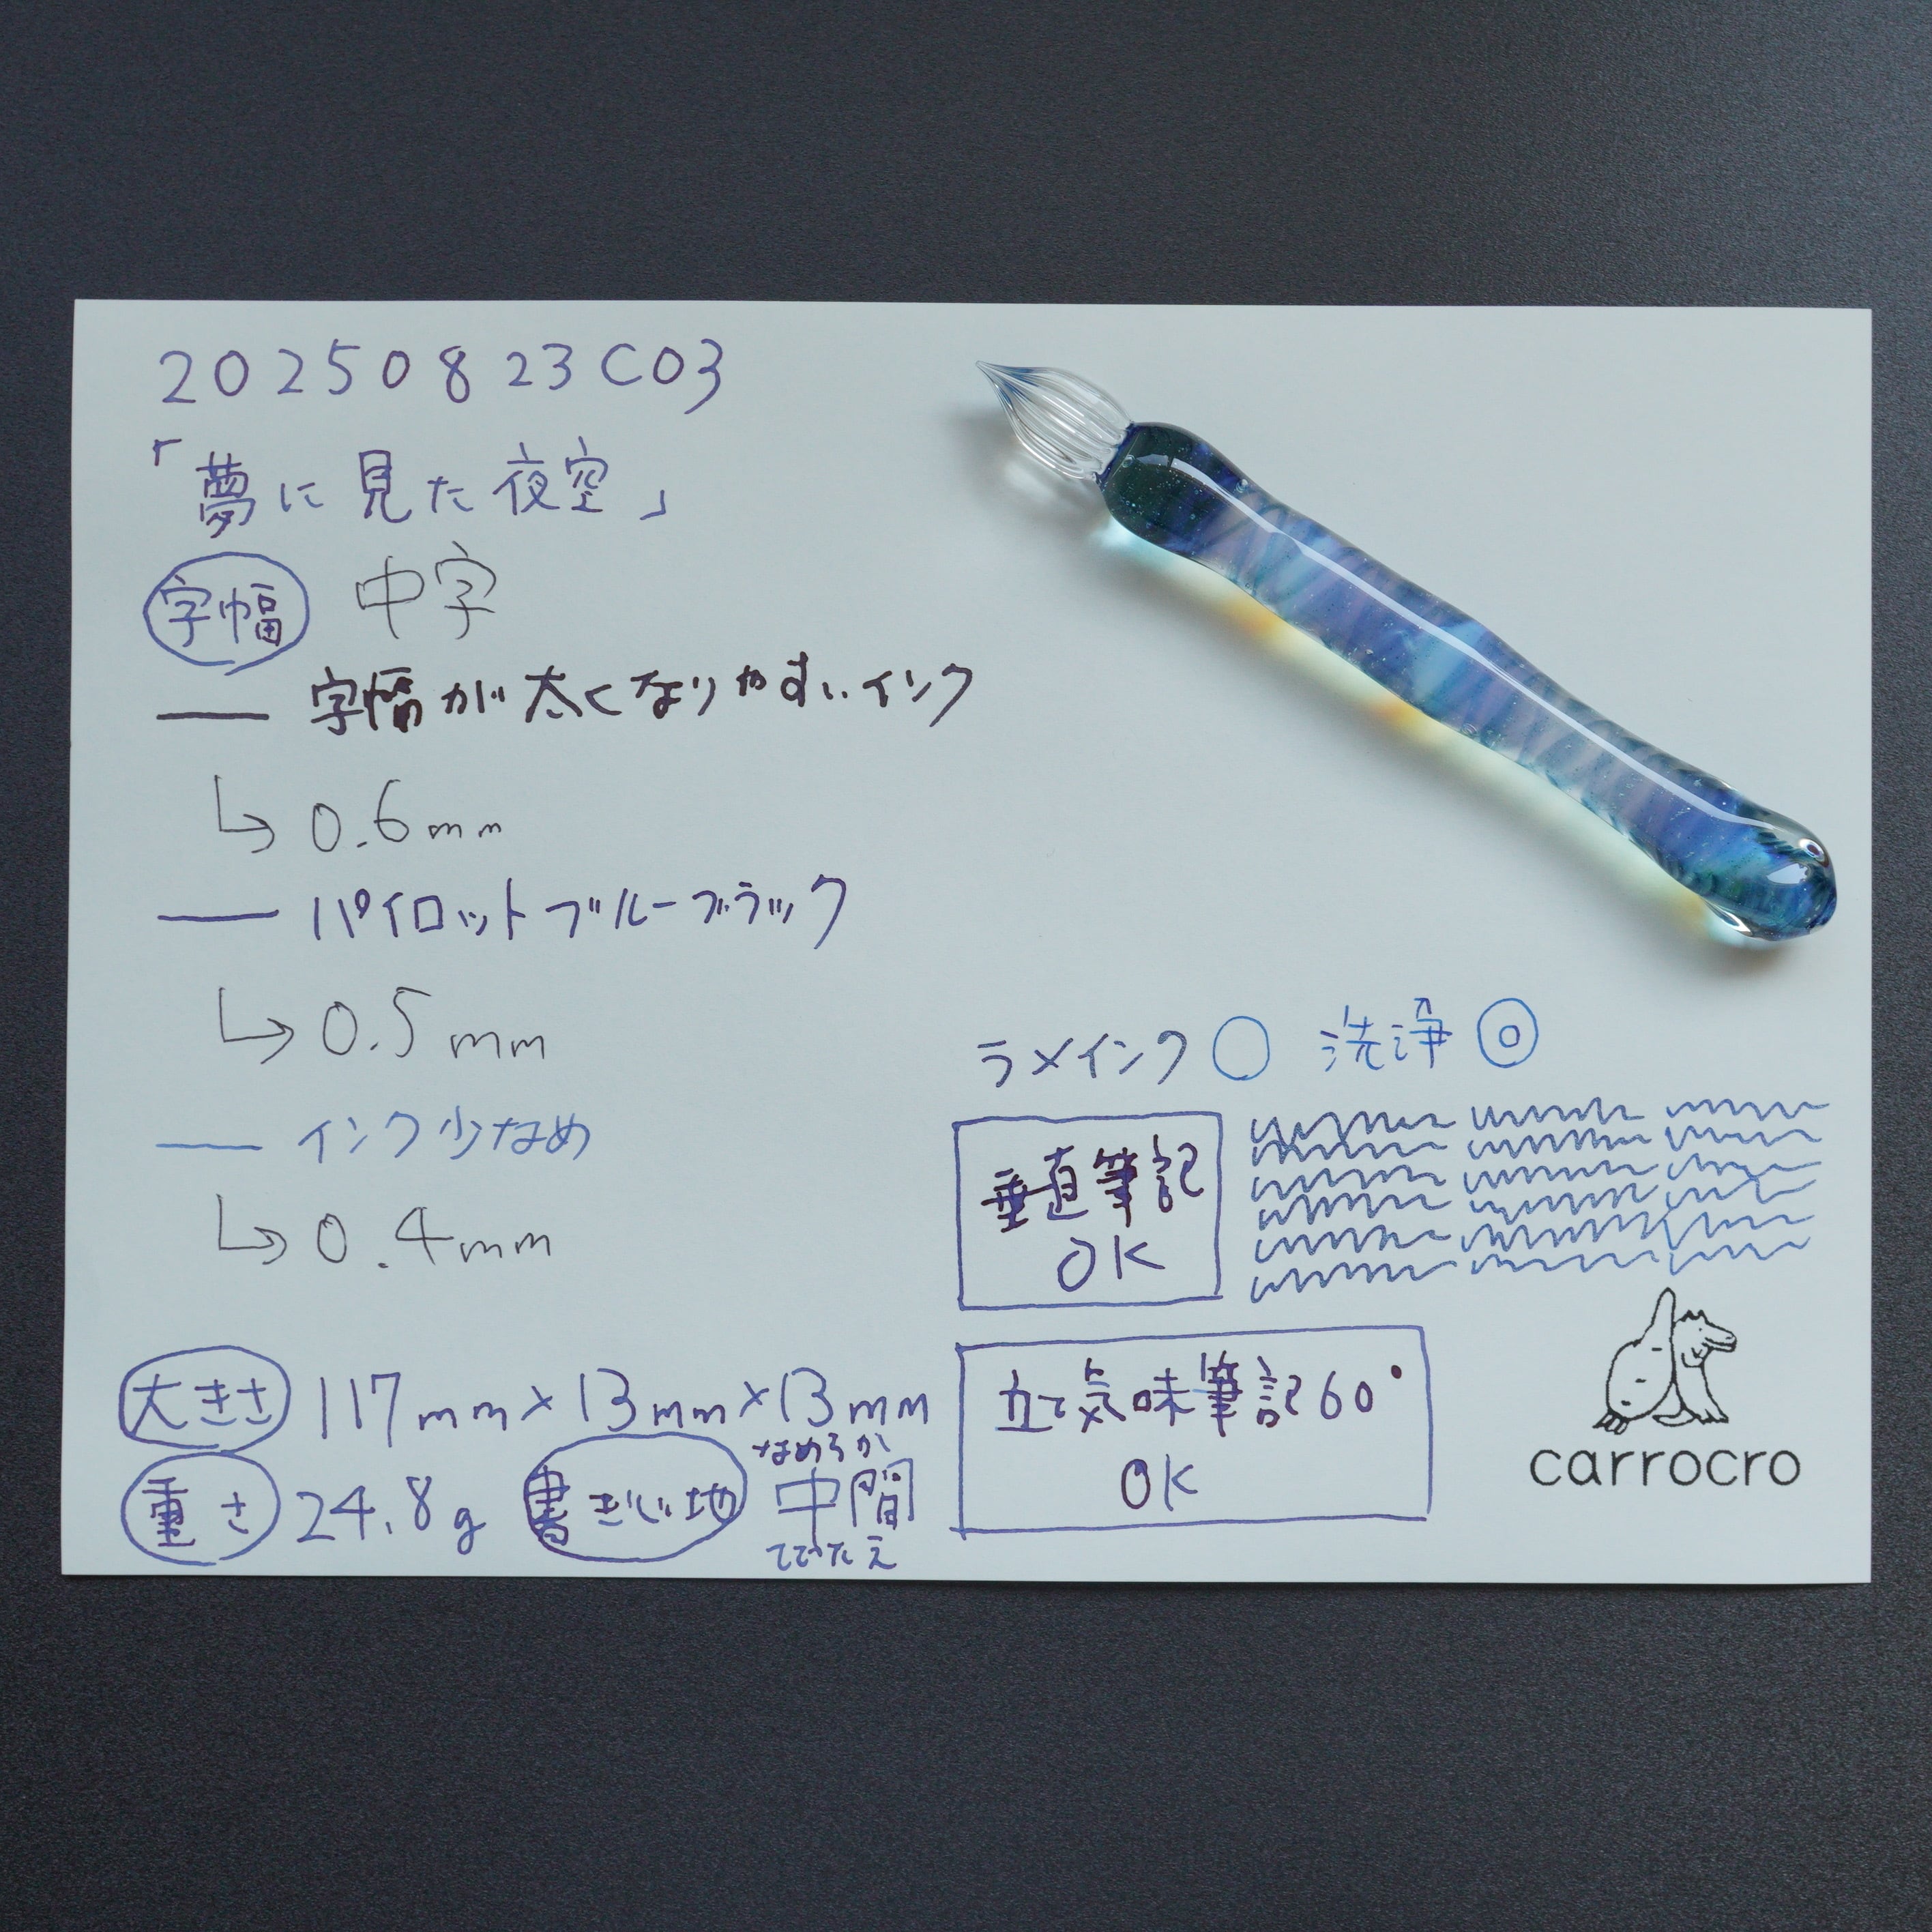 20250823C03
「夢に見た夜空」
字幅 中字
字幅が太くなりやすいインク
0.6mm
パイロットブルーブラック
0.5mm
インク少なめ
0.4mm
大きさ 117mm×13mm×13mm
重さ 24.8g 書き心地 なめらか
中間
てごたえ
ラメインク○ 洗浄◎
垂直筆記
OK
立て気味筆記60°
OK
carrocro